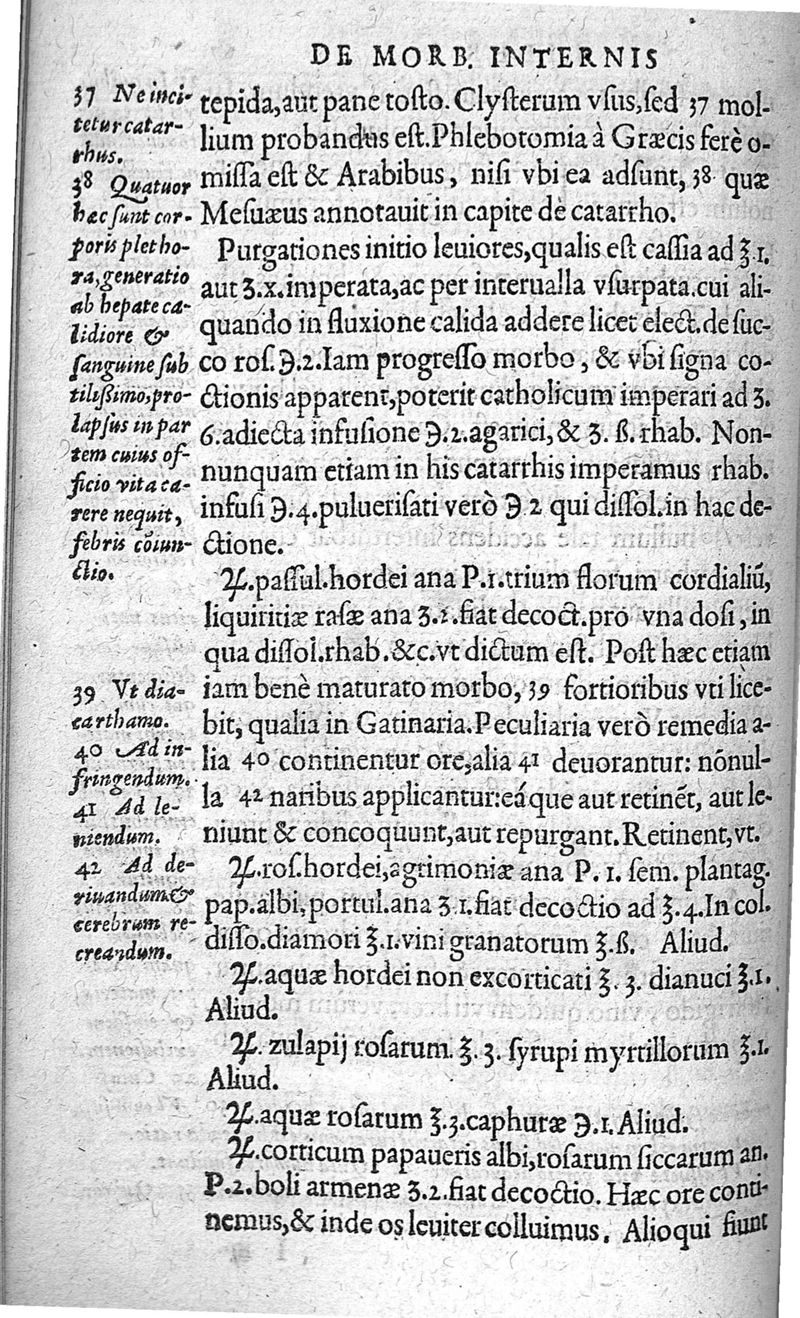 DE MORB. INTERNIS
37 Ne inci-
tetur catar-
rhus.
38 Quatuor
hæc sunt cor-
poris pletho-
ra, generatio
ab hepate ca-
lidiore &
sanguine sub
tilissimo, pro-
lapsus in par
tem cuius of-
ficio vita ca-
rere nequit,
febris cōiun-
ctio.
39 Vt dia-
carthamo.
40 Ad in-
fringendum.
41 Ad le-
niendum.
42 Ad de-
riuandum &
cerebrum re-
creandum.
tepida, aut pane tosto. Clysterum vsus, sed 37 mol-
lium probandus est. Phlebotomia à Græcis ferè o-
missa est & Arabibus, nisi vbi ea adsunt, 38 quæ
Mesuæus annotauit in capite de catarrho.
Purgationes initio leuiores, qualis est cassia ad ℥.1.
aut ʒ.x. imperata, ac per interualla vsurpata. cui ali-
quando in fluxione calida addere licet elect. de suc-
co ros. ℈.2. Iam progresso morbo, & vbi signa co-
ctionis apparent, poterit catholicum imperari ad ʒ.
6. adiecta infusione ℈.2. agarici, & ʒ. ß. rhab. Non-
nunquam etiam in his catarrhis imperamus rhab.
infusi ℈.4. puluerisati verò ℈ 2 qui dissol. in hac de-
ctione.
♃. passul. hordei ana P.1. trium florum cordialiū,
liquiritiæ rasæ ana ʒ.1. fiat decoct. pro vna dosi, in
qua dissol. rhab. &c. vt dictum est. Post hæc etiam
iam benè maturato morbo, 39 fortioribus vti lice-
bit, qualia in Gatinaria. Peculiaria verò remedia a-
lia 40 continentur ore, alia 41 deuorantur: nōnul-
la 42 naribus applicantur: eáque aut retinēt, aut le-
niunt & concoquunt, aut repurgant. Retinent, vt.
♃. ros. hordei, agrimoniæ ana P. 1. sem. plantag.
pap. albi, portul. ana ʒ.1. fiat decoctio ad ℥.4. In col.
disso. diamori ℥.1. vini granatorum ℥.ß. Aliud.
♃. aquæ hordei non excorticati ℥. 3. dianuci ℥.1.
Aliud.
♃. zulapij rosarum. ℥. 3. syrupi myrtillorum ℥.1.
Aliud.
♃. aquæ rosarum ℥.3. caphuræ ℈.1. Aliud.
♃. corticum papaueris albi, rosarum siccarum an.
P.2. boli armenæ ʒ.2. fiat decoctio. Hæc ore conti-
nemus, & inde os leuiter colluimus. Alioqui fiunt